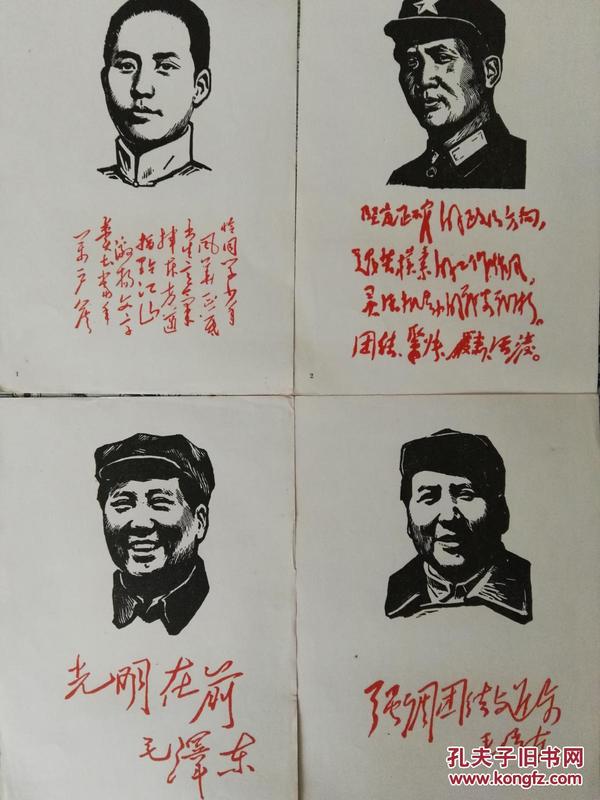 恰同学少年
风华正茂
书生意气
挥斥方遒
指点江山
激扬文字
粪土当年
万户侯
1
坚定正确的政治方向，
艰苦朴素的工作作风，
灵活机动的战略战术。
团结、紧张、严肃、活泼。
2
光明在前
毛澤东
强调团结与进步
毛泽东
孔夫子旧书网
www.kongfz.com